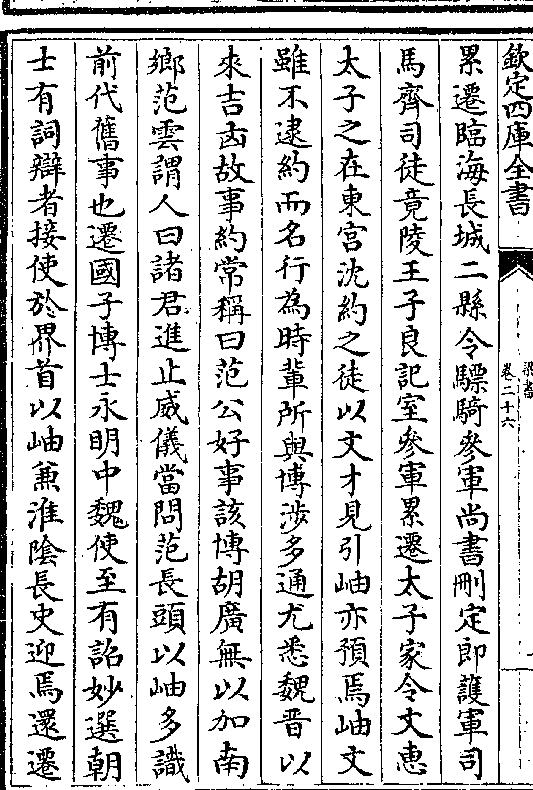 欽定四庫全書
梁書
卷二十六
累遷臨海長城二縣令驃騎參軍尚書刪定郎護軍司
馬齊司徒竟陵王子良記室參軍累遷太子家令文惠
太子之在東宫沈約之徒以文才見引岫亦預焉岫文
雖不逮約而名行為時輩所與博涉多通尤悉魏晋以
來吉凶故事約常稱曰范公好事該博胡廣無以加南
鄉范雲謂人曰諸君進止威儀當問范長頭以岫多識
前代舊事也遷國子博士永明中魏使至有詔妙選朝
士有詞辯者接使於界首以岫兼淮陰長史迎焉還遷